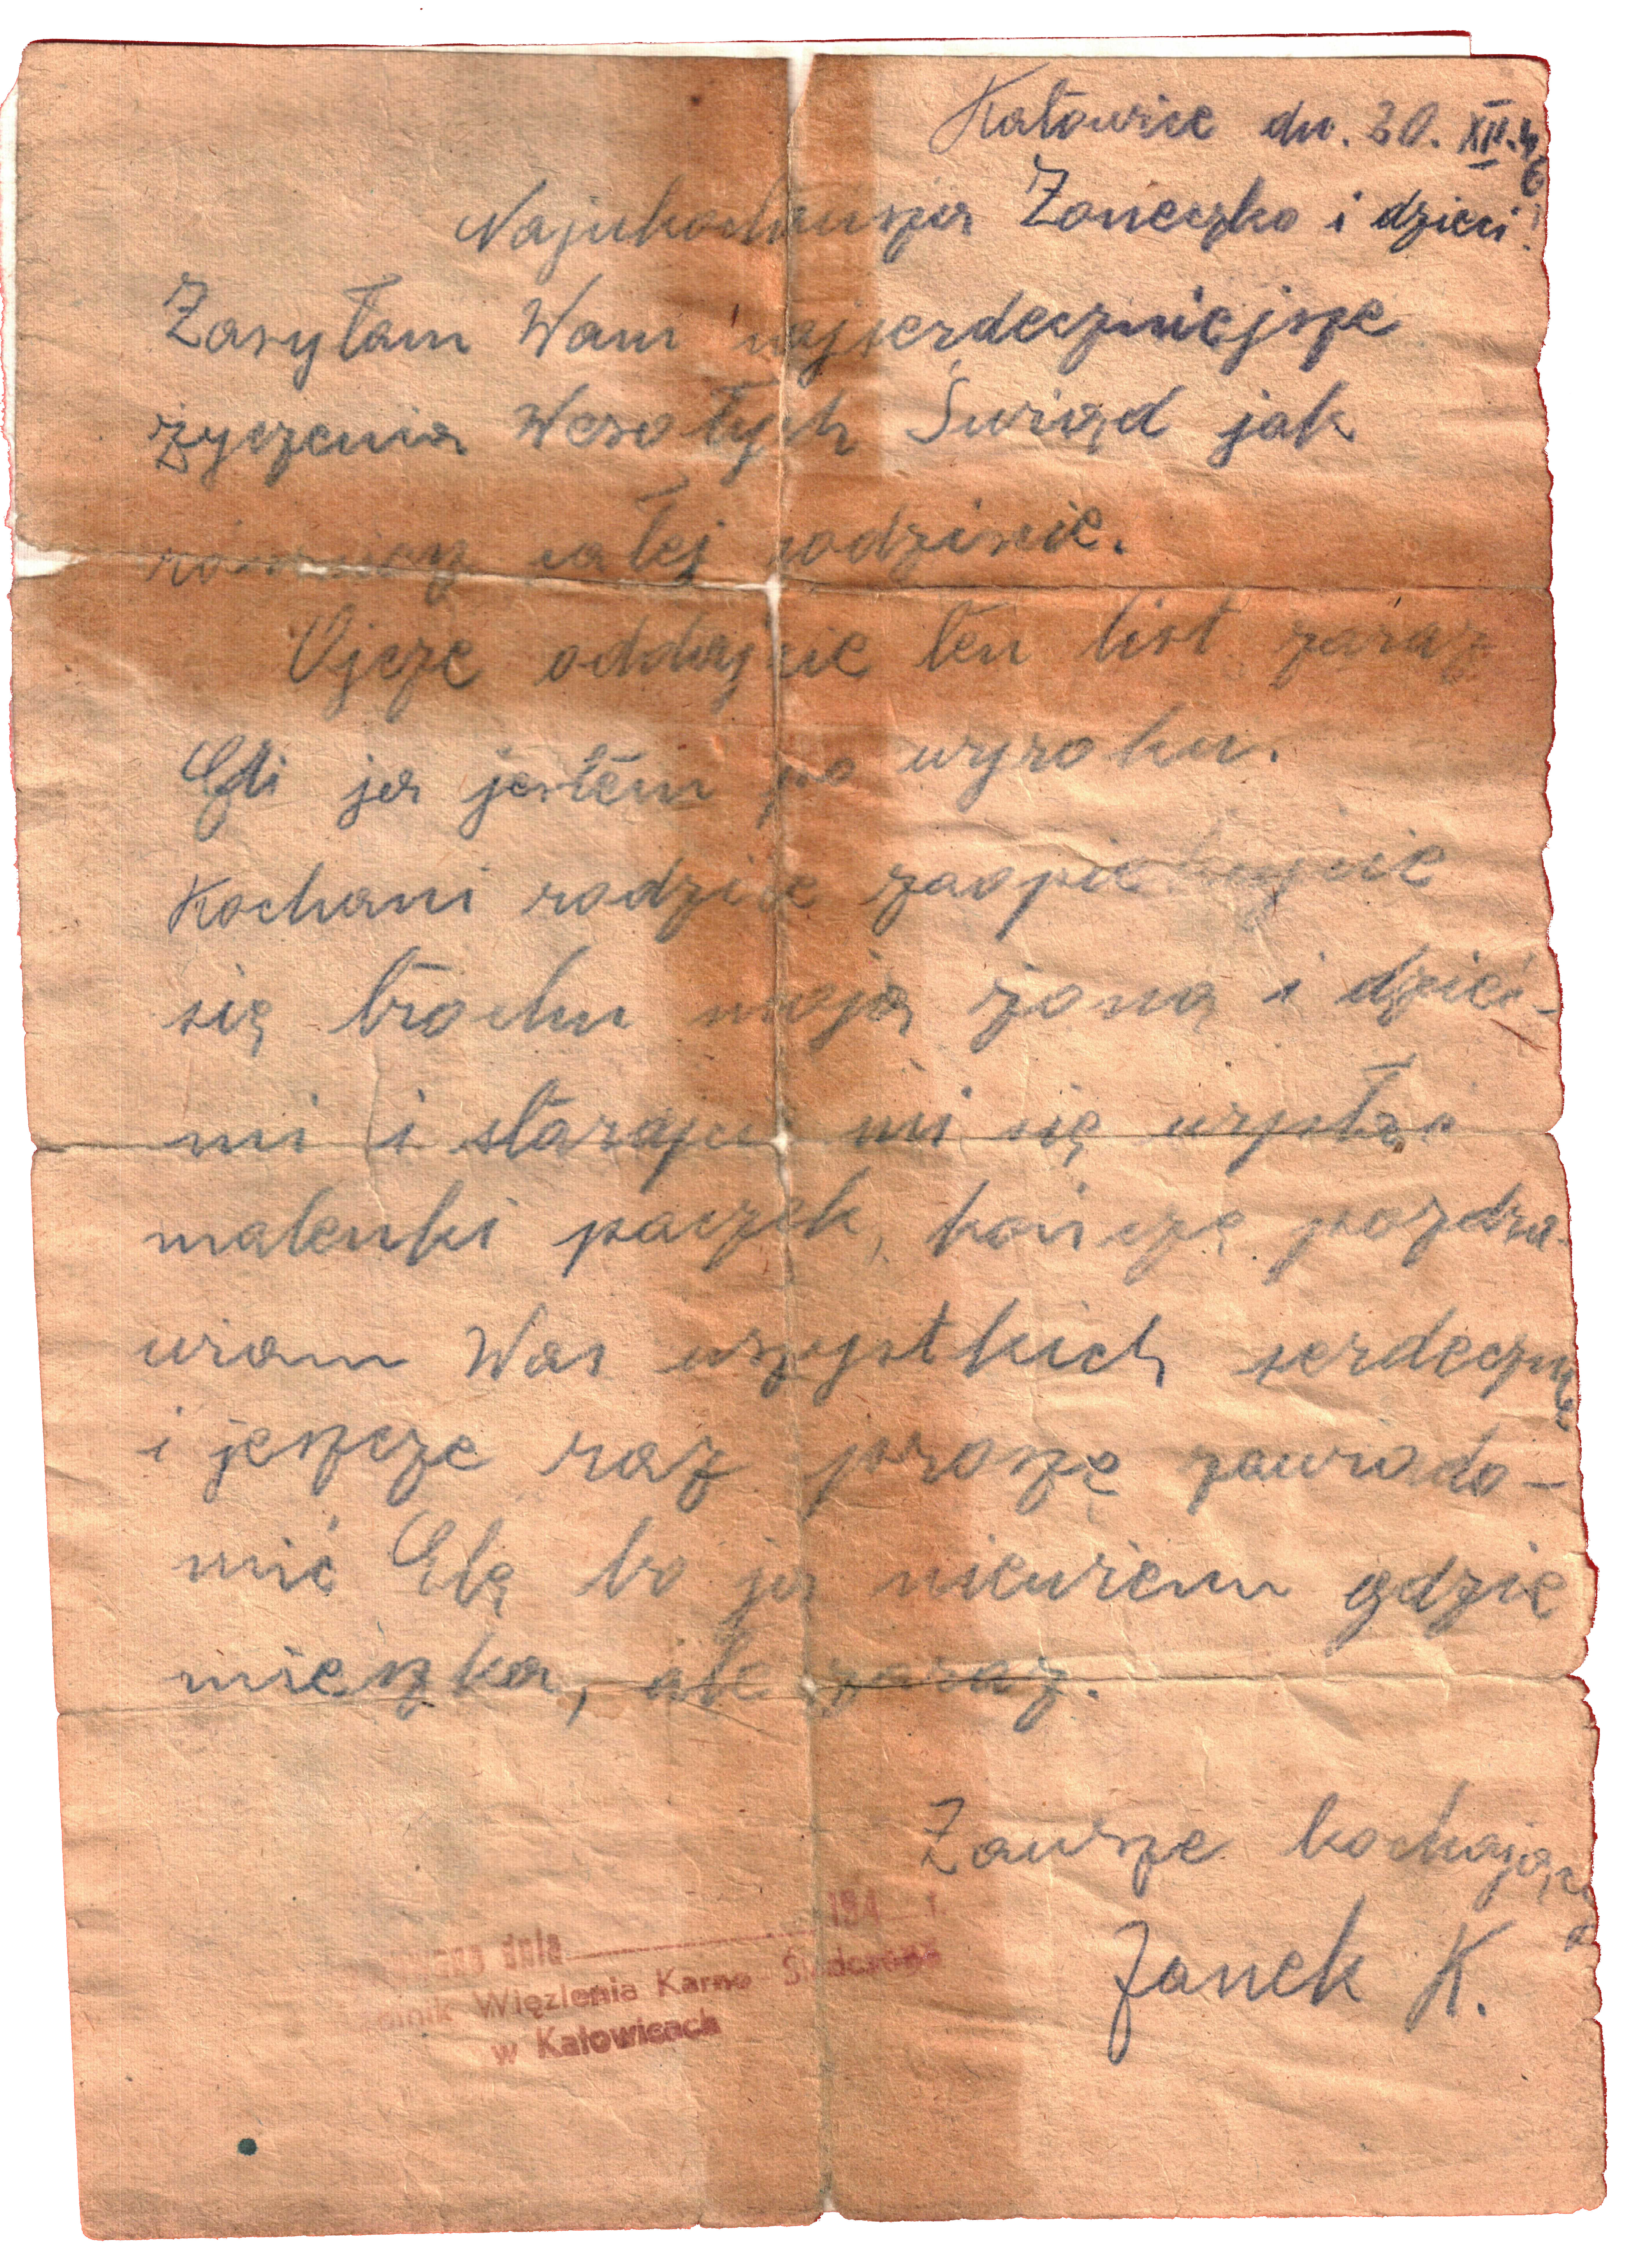 Katowice dn. 30. XII. 46
Najukochańsza Żoneczko i dzieci!
Zasyłam Wam najserdeczniejsze
życzenia Wesołych Świąd jak
również całej rodzinie.
Ojcze oddajcie ten list zaraz
Eli ja jestem po wyroku.
Kochani rodzice zaopiekujcie
się trochu moją żoną i dzieć-
mi i starajcie mi się wysłać
malenki paczek, kończę pozdra-
wiam Was wszystkich serdecznie
i jeszcze raz proszę zawiado-
mić Elę bo ja niewiem gdzie
mieszka, ale zaraz.
Zawsze kochający
Janek K.
dnia 194 r.
Więzienia Karno-Śledczego
w Katowicach